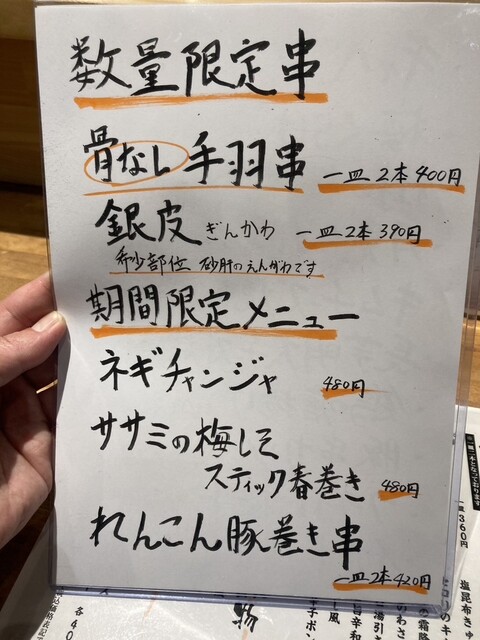 数量限定串
骨なし手羽串 一皿2本400円
銀皮 ぎんかわ 一皿2本390円
希少部位 砂肝のえんがわです
期間限定メニュー
ネギチャンジャ 480円
ササミの梅しそ
スティック春巻き 480円
れんこん豚巻き串
一皿2本420円
一皿360円
塩昆布きゅ